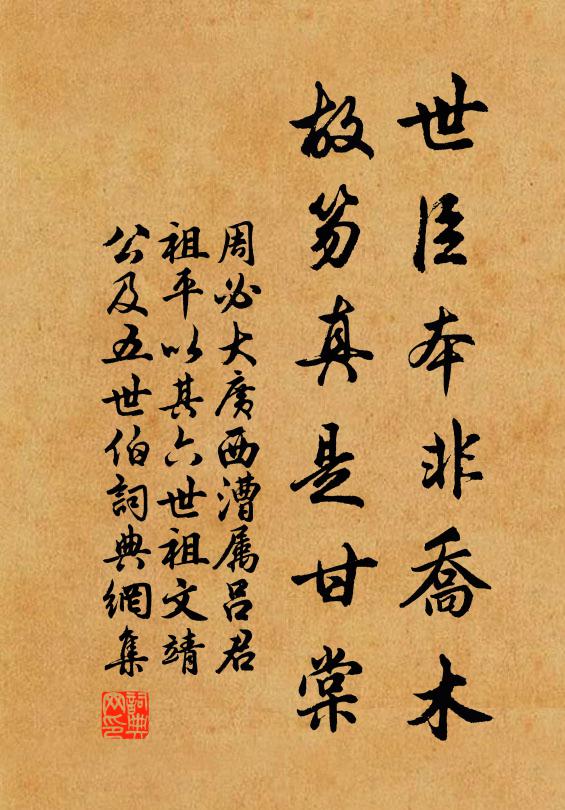 世臣本非喬木
故笏真是甘棠
周必大廣西漕属吕君
祖平以其六世祖文靖
公及五世伯詞典網集
詞典網印